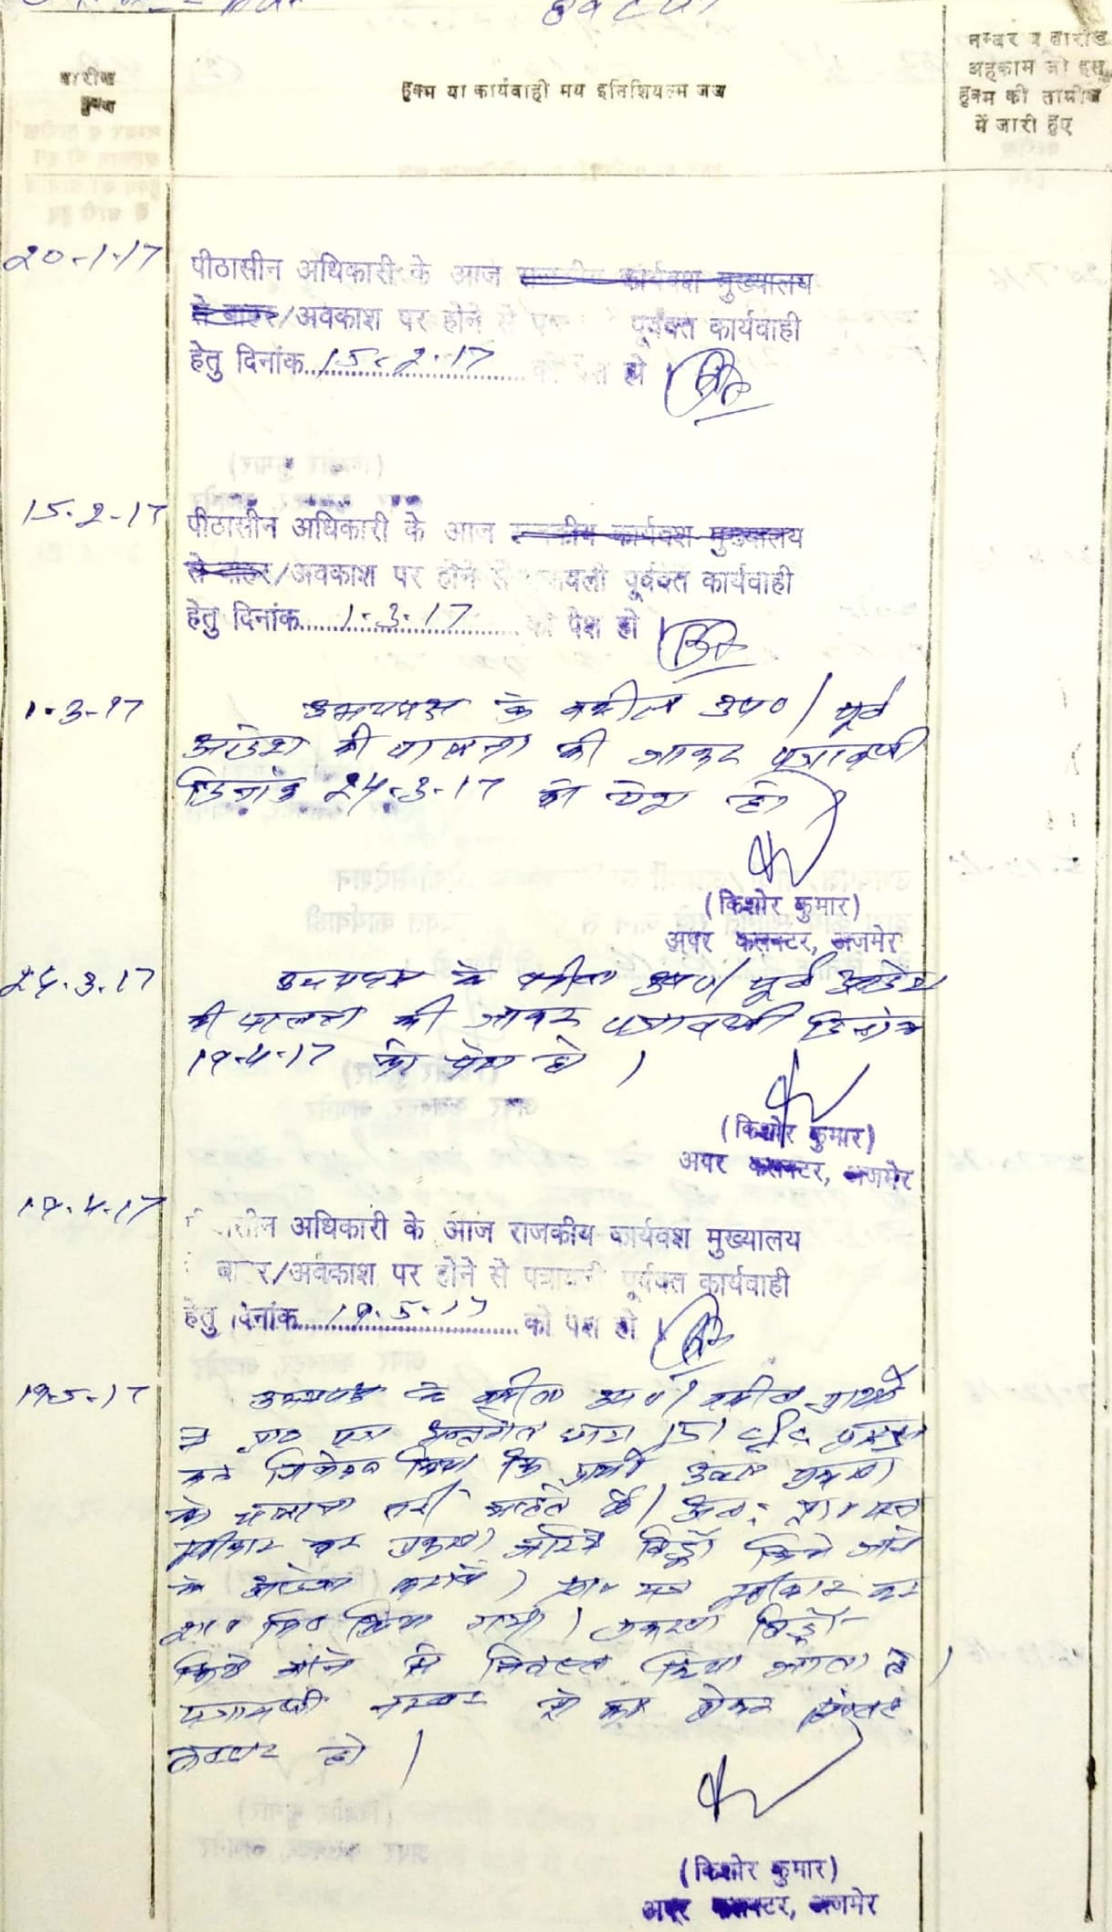 तारीख
हुक्म
हुक्म या कार्यवाही मय इनिशियल्म जज
नम्बर व तारीख
अहकाम जो इस
हुक्म की तामील
में जारी हुए
20-1-17
पीठासीन अधिकारी के आज राजकीय कार्यवश मुख्यालय
से बाहर/अवकाश पर होने से पूर्वक्त कार्यवाही
हेतु दिनांक 15-2-17 को पेश हो
15-2-17
पीठासीन अधिकारी के आज राजकीय कार्यवश मुख्यालय
से बाहर/अवकाश पर होने से पत्रावली पूर्वक्त कार्यवाही
हेतु दिनांक 1-3-17 को पेश हो
1-3-17
उभयपक्ष के वकील उप० / पूर्व
आदेश की पालना की जाकर पत्रावली
दिनांक 24-3-17 को पेश हो
(किशोर कुमार)
अपर कलक्टर, अजमेर
24-3-17
उभयपक्ष के वकील उप० / पूर्व आदेश
की पालना की जाकर पत्रावली दिनांक
19-4-17 को पेश हो ।
(किशोर कुमार)
अपर कलक्टर, अजमेर
19-4-17
पीठासीन अधिकारी के आज राजकीय कार्यवश मुख्यालय
बाहर/अवकाश पर होने से पत्रावली पूर्वक्त कार्यवाही
हेतु दिनांक 19-5-17 को पेश हो
19-5-17
उभयपक्ष के वकील उप० / वकील प्रार्थी
ने प्रा० पत्र अन्तर्गत धारा 151
कर निवेदन किया कि प्रार्थी उक्त प्रकरण
को चलाना नहीं चाहते है / अतः प्रा० पत्र
स्वीकार कर प्रकरण विड्रॉ किये जाने
के आदेश / प्रा० पत्र स्वीकार कर
किया गया / प्रकरण विड्रॉ
किये जाने से निरस्त किया जाता है ।
पत्रावली नम्बर से कम होकर
दफ्तर हो ।
(किशोर कुमार)
अपर कलक्टर, अजमेर